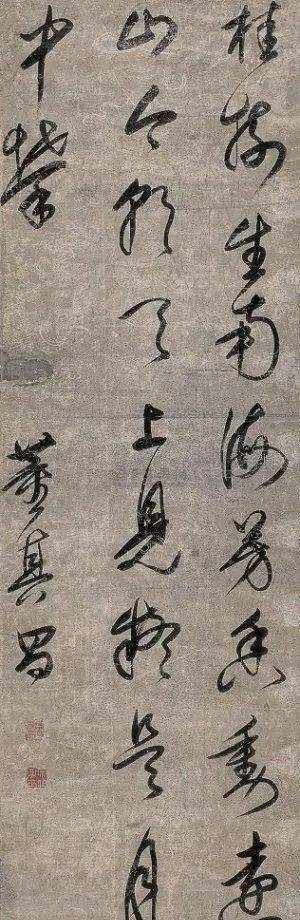 桂樹生南海芳香
山今朝天上見疑是月
中攀
董其昌